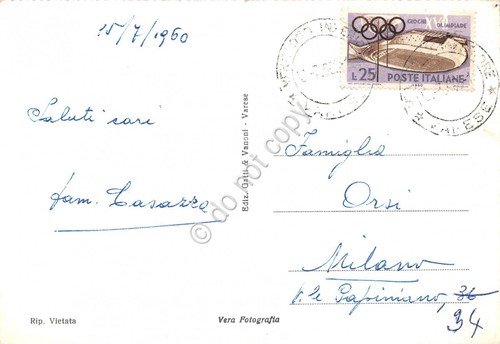 15/7/1960
Saluti cari
fam. Casazza
Ediz. Gatti & Vanoni - Varese
Rip. Vietata
Vera Fotografia
GIOCHI XVII OLIMPIADE
L.25 POSTE ITALIANE
VARESE
Famiglia
Orsi
Milano
V.le Papiniano, 36
34
do not copy